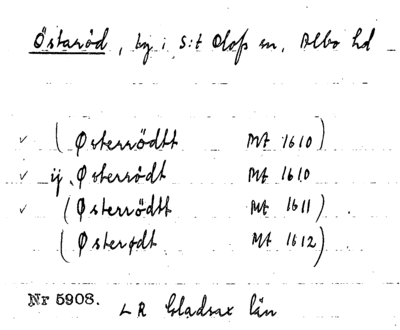 Östaröd, by i S:t Olofs sn, Albo hd
✓ ( Østerrödtt Mt 1610 )
✓ ij. Østerrödt Mt 1610
✓ ( Østerrödtt Mt 1611 )
( Österødt Mt 1612 )
Nr 5908. LR Gladsax län